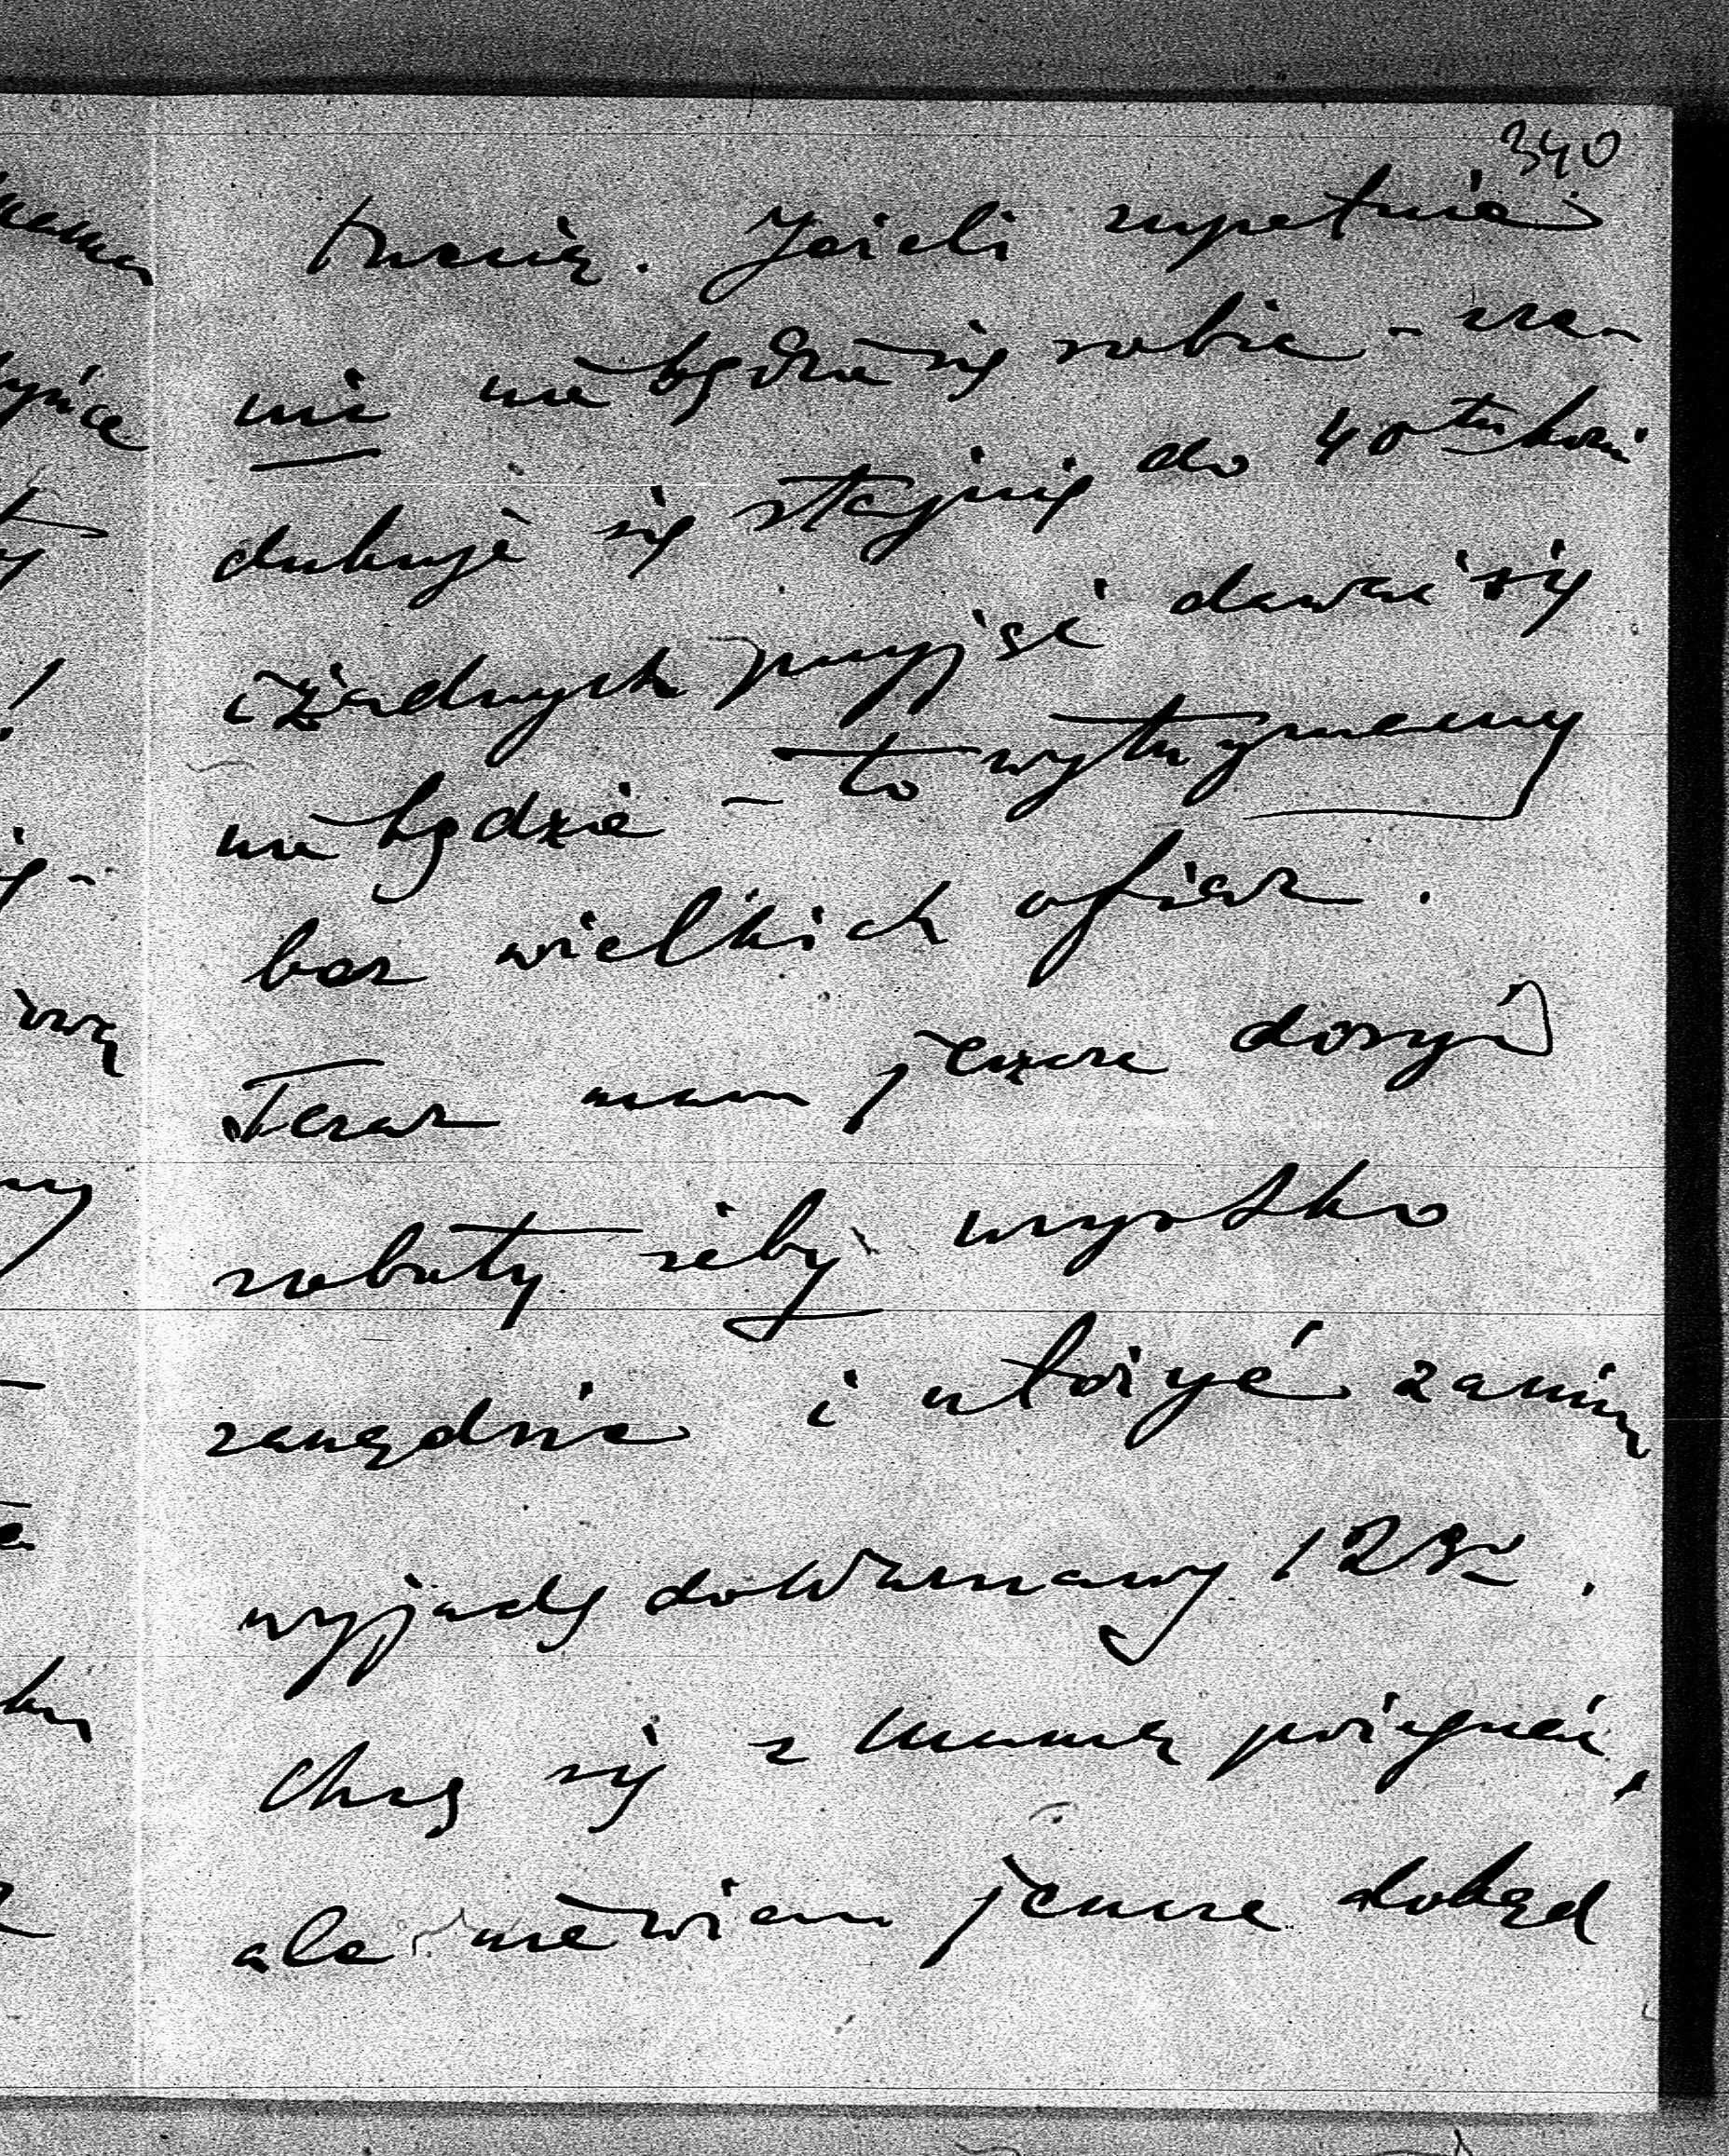 340
Jeżeli zupełnie
nic nie będzie się robić – zre-
dukuje się stajnię do 4 sztuk koni
i żadnych przyjęć dawać się
nie będzie – to wytrzymamy
bez wielkich ofiar.
Teraz mam jeszcze dosyć
roboty żeby wszystko
zarządzić i ułożyć zanim
wyjadę do Warszawy 12 go.
Chcę się z Mamą pożegnać,
ale nie wiem jeszcze dokąd